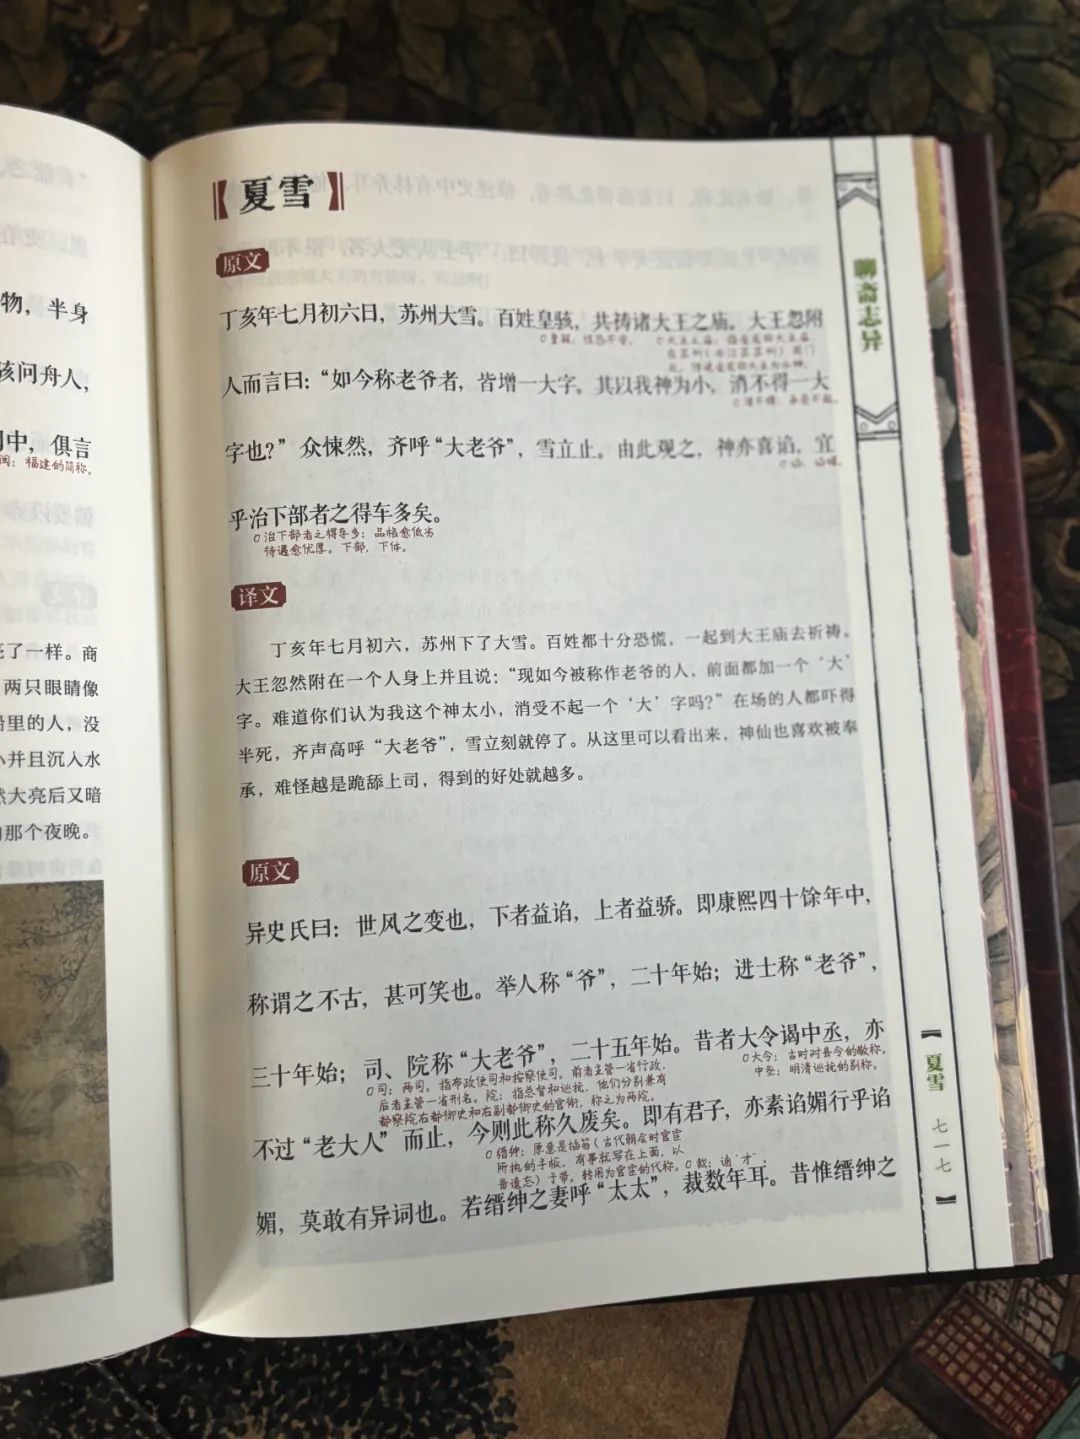 物，半身
孩问舟人，
中，俱言
闽：福建的简称。
亮了一样。商
两只眼睛像
船里的人，没
小并且沉入水
然大亮后又暗
那个夜晚。
夏雪
原文
丁亥年七月初六日，苏州大雪。百姓皇骇，共祷诸大王之庙。大王忽附
皇骇：惊恐不安。
人而言曰：“如今称老爷者，皆增一大字。其以我神为小，消不得一大
字也？”众悚然，齐呼“大老爷”，雪立止。由此观之，神亦喜谄，宜
乎治下部者之得车多矣。
治下部者之得车多：品格愈低劣
待遇愈优厚。下部，下体。
译文
丁亥年七月初六，苏州下了大雪。百姓都十分恐慌，一起到大王庙去祈祷。
大王忽然附在一个人身上并且说：“现如今被称作老爷的人，前面都加一个‘大’
字。难道你们认为我这个神太小，消受不起一个‘大’字吗？”在场的人都吓得
半死，齐声高呼“大老爷”，雪立刻就停了。从这里可以看出来，神仙也喜欢被奉
承，难怪越是跪舔上司，得到的好处就越多。
原文
异史氏曰：世风之变也，下者益谄，上者益骄。即康熙四十馀年中，
称谓之不古，甚可笑也。举人称“爷”，二十年始；进士称“老爷”，
三十年始；司、院称“大老爷”，二十五年始。昔者大令谒中丞，亦
司：两司。指布政使司和按察使司。前者主管一省行政，
后者主管一省刑名。院：指总督和巡抚，他们分别兼有
都察院右都御史和右副都御史的官衔，称之为两院。
大令：古时对县令的敬称。
中丞：明清巡抚的别称。
不过“老大人”而止，今则此称久废矣。即有君子，亦素谄媚行乎谄
缙绅：原意是插笏（古代朝会时官宦
所执的手板，有事就写在上面，以
备遗忘）于带，转用为官宦的代称。
裁：通“才”。
媚，莫敢有异词也。若缙绅之妻呼“太太”，裁数年耳。昔惟缙绅之
聊斋志异
夏雪
七一七